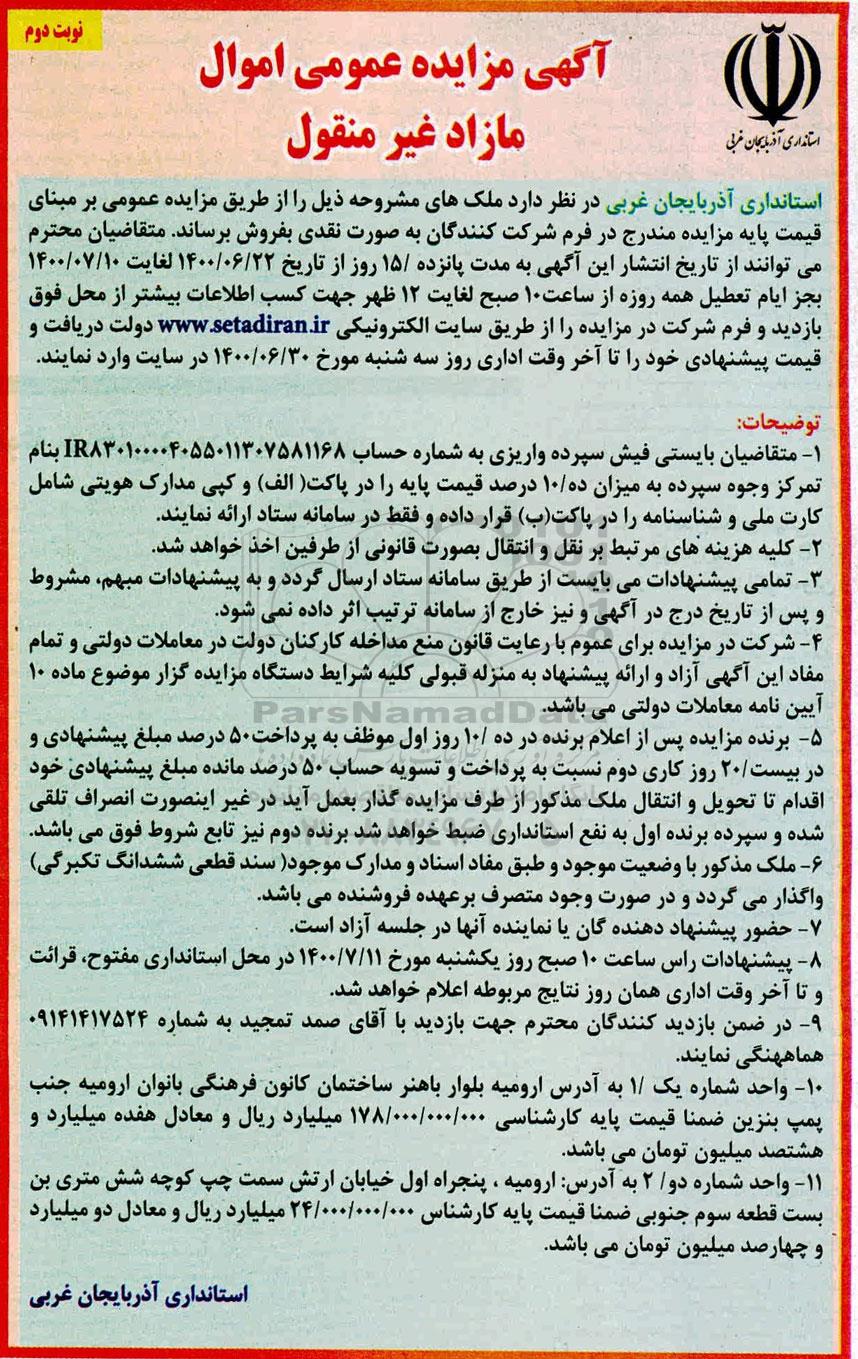 نوبت دوم
آگهی مزایده عمومی اموال
مازاد غیر منقول
استانداری آذربایجان غربی
استانداری آذربایجان غربی در نظر دارد ملک های مشروحه ذیل را از طریق مزایده عمومی بر مبنای
قیمت پایه مزایده مندرج در فرم شرکت کنندگان به صورت نقدی بفروش برساند. متقاضیان محترم
می توانند از تاریخ انتشار این آگهی به مدت پانزده /۱۵ روز از تاریخ ۱۴۰۰/۰۶/۲۲ لغایت ۱۴۰۰/۰۷/۱۰
بجز ایام تعطیل همه روزه از ساعت۱۰ صبح لغایت ۱۲ ظهر جهت کسب اطلاعات بیشتر از محل فوق
بازدید و فرم شرکت در مزایده را از طریق سایت الکترونیکی www.setadiran.ir دولت دریافت و
قیمت پیشنهادی خود را تا آخر وقت اداری روز سه شنبه مورخ ۱۴۰۰/۰۶/۳۰ در سایت وارد نمایند.
توضیحات:
۱- متقاضیان بایستی فیش سپرده واریزی به شماره حساب IR۸۳۰۱۰۰۰۰۴۰۵۵۰۱۱۳۰۷۵۸۱۱۶۸ بنام
تمرکز وجوه سپرده به میزان ده/۱۰ درصد قیمت پایه را در پاکت( الف) و کپی مدارک هویتی شامل
کارت ملی و شناسنامه را در پاکت(ب) قرار داده و فقط در سامانه ستاد ارائه نمایند.
۲- کلیه هزینه های مرتبط بر نقل و انتقال بصورت قانونی از طرفین اخذ خواهد شد.
۳- تمامی پیشنهادات می بایست از طریق سامانه ستاد ارسال گردد و به پیشنهادات مبهم، مشروط
و پس از تاریخ درج در آگهی و نیز خارج از سامانه ترتیب اثر داده نمی شود.
۴- شرکت در مزایده برای عموم با رعایت قانون منع مداخله کارکنان دولت در معاملات دولتی و تمام
مفاد این آگهی آزاد و ارائه پیشنهاد به منزله قبولی کلیه شرایط دستگاه مزایده گزار موضوع ماده ۱۰
آیین نامه معاملات دولتی می باشد.
ParsNamadData
۵- برنده مزایده پس از اعلام برنده در ده /۱۰ روز اول موظف به پرداخت۵۰ درصد مبلغ پیشنهادی و
در بیست/۲۰ روز کاری دوم نسبت به پرداخت و تسویه حساب ۵۰ درصد مانده مبلغ پیشنهادی خود
اقدام تا تحویل و انتقال ملک مذکور از طرف مزایده گذار بعمل آید در غیر اینصورت انصراف تلقی
شده و سپرده برنده اول به نفع استانداری ضبط خواهد شد برنده دوم نیز تابع شروط فوق می باشد.
۶- ملک مذکور با وضعیت موجود و طبق مفاد اسناد و مدارک موجود( سند قطعی ششدانگ تکبرگی)
واگذار می گردد و در صورت وجود متصرف برعهده فروشنده می باشد.
۷- حضور پیشنهاد دهنده گان یا نماینده آنها در جلسه آزاد است.
۸- پیشنهادات راس ساعت ۱۰ صبح روز یکشنبه مورخ ۱۴۰۰/۷/۱۱ در محل استانداری مفتوح، قرائت
و تا آخر وقت اداری همان روز نتایج مربوطه اعلام خواهد شد.
۹- در ضمن بازدید کنندگان محترم جهت بازدید با آقای صمد تمجید به شماره ۰۹۱۴۱۴۱۷۵۲۴
هماهنگی نمایند.
۱۰- واحد شماره یک /۱ به آدرس ارومیه بلوار باهنر ساختمان کانون فرهنگی بانوان ارومیه جنب
پمپ بنزین ضمنا قیمت پایه کارشناسی ۱۷۸/۰۰۰/۰۰۰/۰۰۰ میلیارد ریال و معادل هفده میلیارد و
هشتصد میلیون تومان می باشد.
۱۱- واحد شماره دو/ ۲ به آدرس: ارومیه ، پنجراه اول خیابان ارتش سمت چپ کوچه شش متری بن
بست قطعه سوم جنوبی ضمنا قیمت پایه کارشناس ۲۴/۰۰۰/۰۰۰/۰۰۰ میلیارد ریال و معادل دو میلیارد
و چهارصد میلیون تومان می باشد.
استانداری آذربایجان غربی